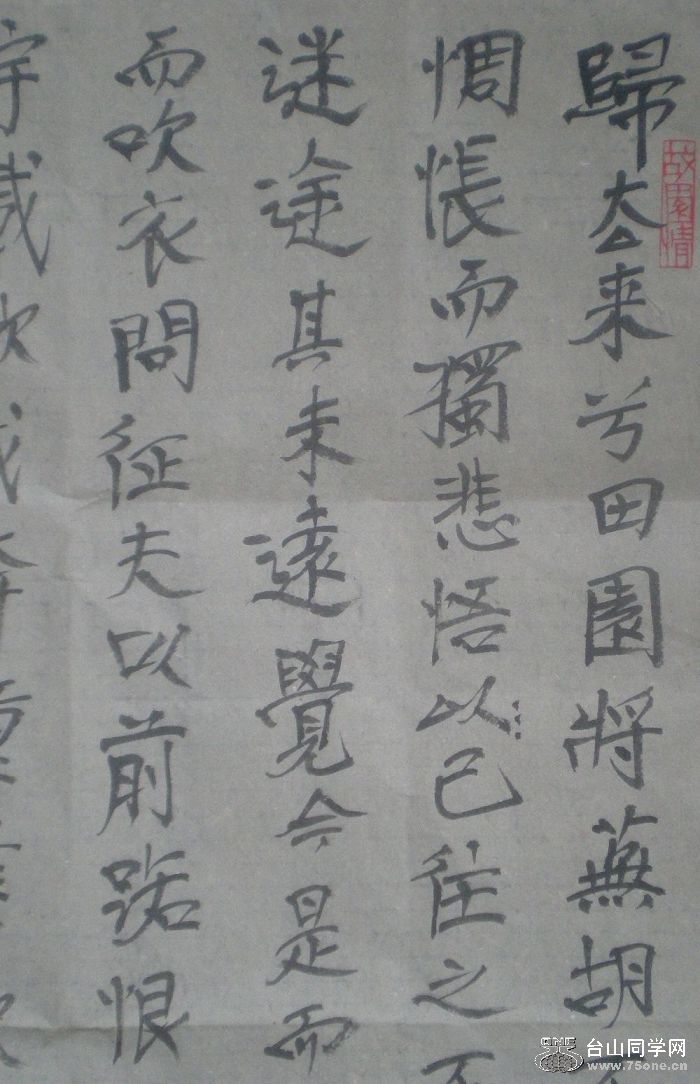 歸去来兮田園將蕪胡
故園情
惆悵而獨悲悟以已往之不
迷途其未遠覺今是而
而吹衣問征夫以前路恨
宇載欣載奔
台山同学网
www.75one.cn